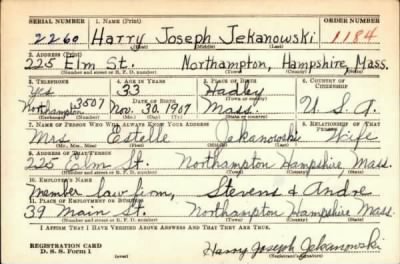 SERIAL NUMBER 1. NAME (Print) ORDER NUMBER
2260 Harry Joseph Jekanowski 1184
(First) (Middle) (Last)
2. ADDRESS (Print)
225 Elm St. Northampton, Hampshire, Mass.
(Number and street or R. F. D. number) (Town) (County) (State)
3. TELEPHONE 4. AGE IN YEARS 5. PLACE OF BIRTH 6. COUNTRY OF CITIZENSHIP
Yes 33 Hadley
(Town or county)
Northampton 3507 DATE OF BIRTH Mass. U. S. A.
Nov. 30, 1907
(Exchange) (Number) (Mo.) (Day) (Yr.) (State or country)
7. NAME OF PERSON WHO WILL ALWAYS KNOW YOUR ADDRESS 8. RELATIONSHIP OF THAT PERSON
Mrs. Estelle Jekanowski Wife
(Mr., Mrs., Miss) (First) (Middle) (Last)
9. ADDRESS OF THAT PERSON
225 Elm St. Northampton Hampshire Mass.
(Number and street or R. F. D. number) (Town) (County) (State)
10. EMPLOYER'S NAME
Member law firm, Stevens & Andre
11. PLACE OF EMPLOYMENT OR BUSINESS
39 Main St. Northampton Hampshire Mass.
(Number and street or R. F. D. number) (Town) (County) (State)
I AFFIRM THAT I HAVE VERIFIED ABOVE ANSWERS AND THAT THEY ARE TRUE.
REGISTRATION CARD
D. S. S. Form 1 (over) Harry Joseph Jekanowski
(Registrant's signature)